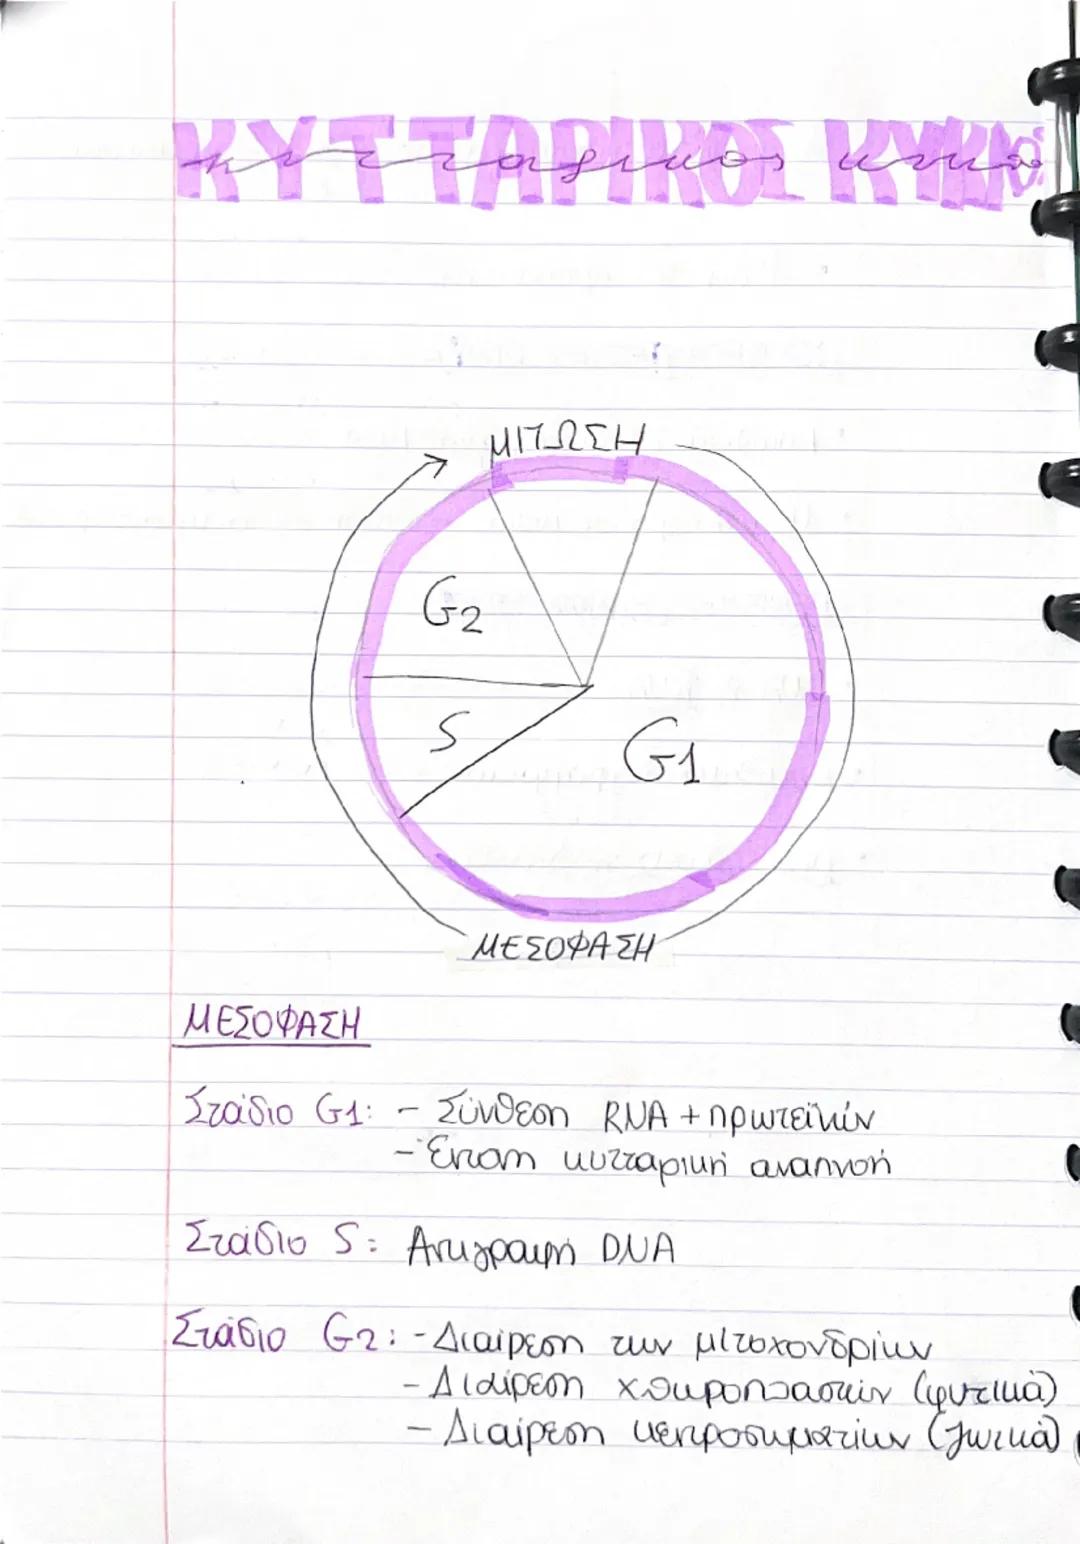 ΚΥΤΤΑΡΙΚΟΣ ΚΥΚΛΟΣ
κυτταρικος κυκλος
ΜΙΤΩΣΗ
G2
S
G1
ΜΕΣΟΦΑΣΗ
ΜΕΣΟΦΑΣΗ
Στάδιο G1: - Σύνθεση RNA + πρωτεϊνών
- Έντονη κυτταρική αναπνοή
Στάδιο S: Αντιγραφή DNA
Στάδιο G2: - Διαίρεση των μιτοχονδρίων
- Διαίρεση χλωροπλαστών (φυτικά)
- Διαίρεση κεντροσωματίων (ζωικά)